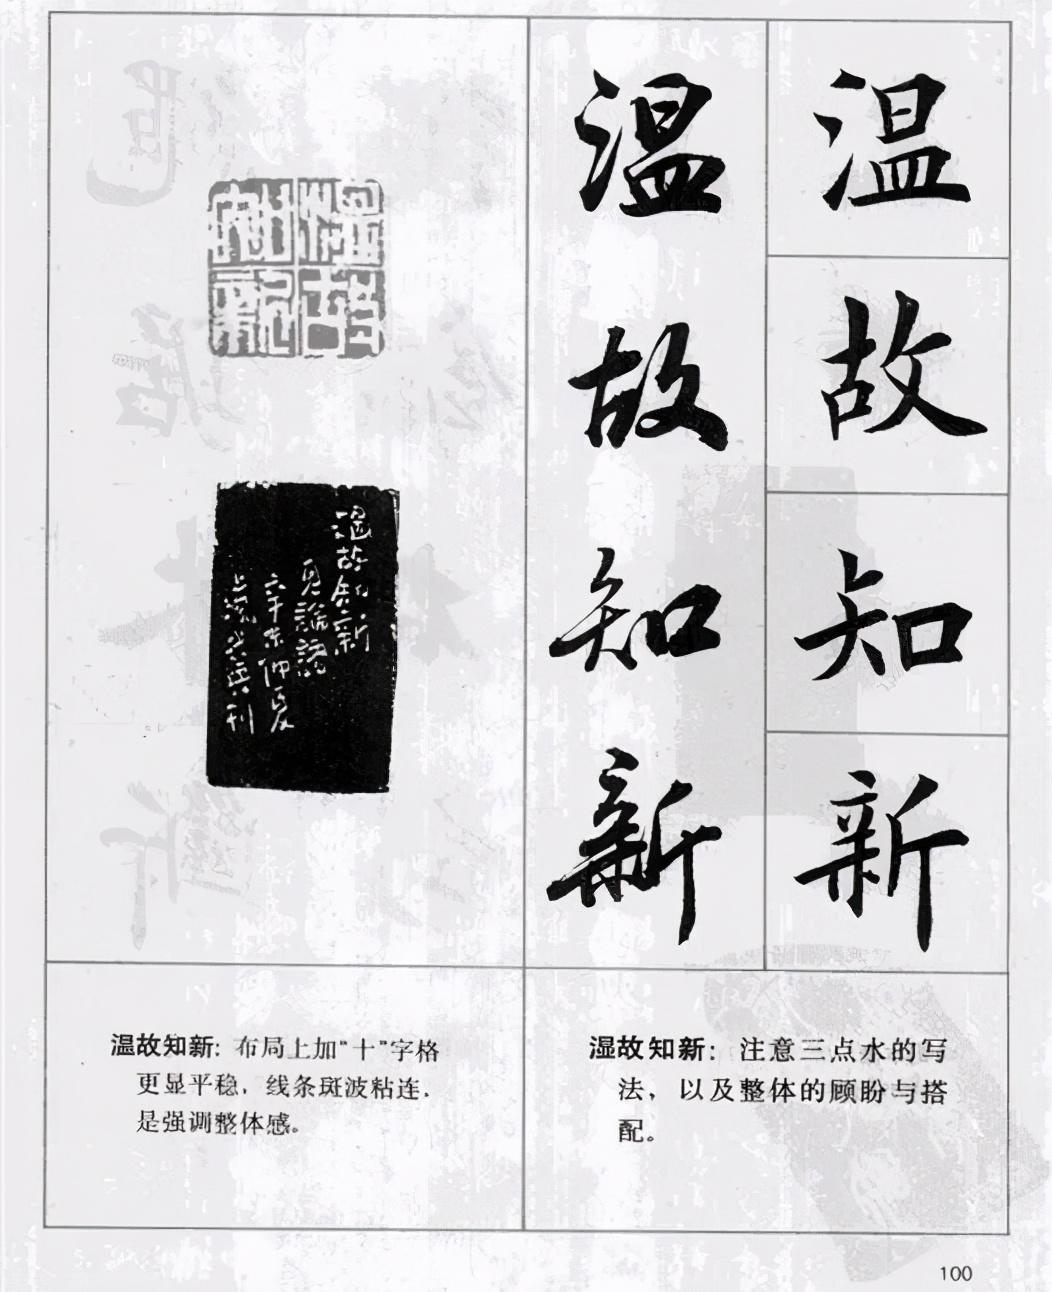 温故知新
温故知新
温故知新
温故知新
見論語
辛未仲夏
温故知新：布局上加“十”字格
更显平稳，线条斑波粘连，
是强调整体感。
温故知新：注意三点水的写
法，以及整体的顾盼与搭
配。
100